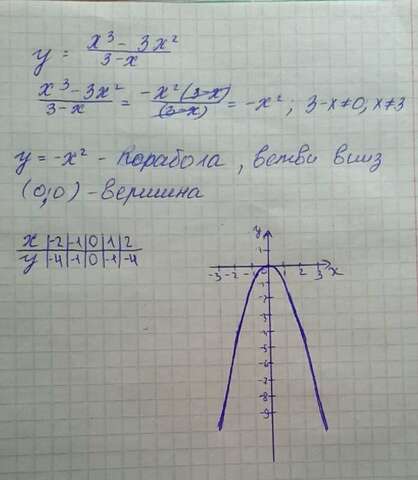 y = (x³ - 3x²)/(3-x)
(x³ - 3x²)/(3-x) = (-x²(3-x))/((3-x)) = -x² ; 3-x≠0, x≠3
y = -x² - Порабола, ветви вниз
(0;0) - вершина
x |-2|-1|0|1|2
y |-4|-1|0|-1|-4
y
1
-3 -2 -1 0 1 2 3 x
-1
-2
-3
-4
-5
-6
-7
-8
-9